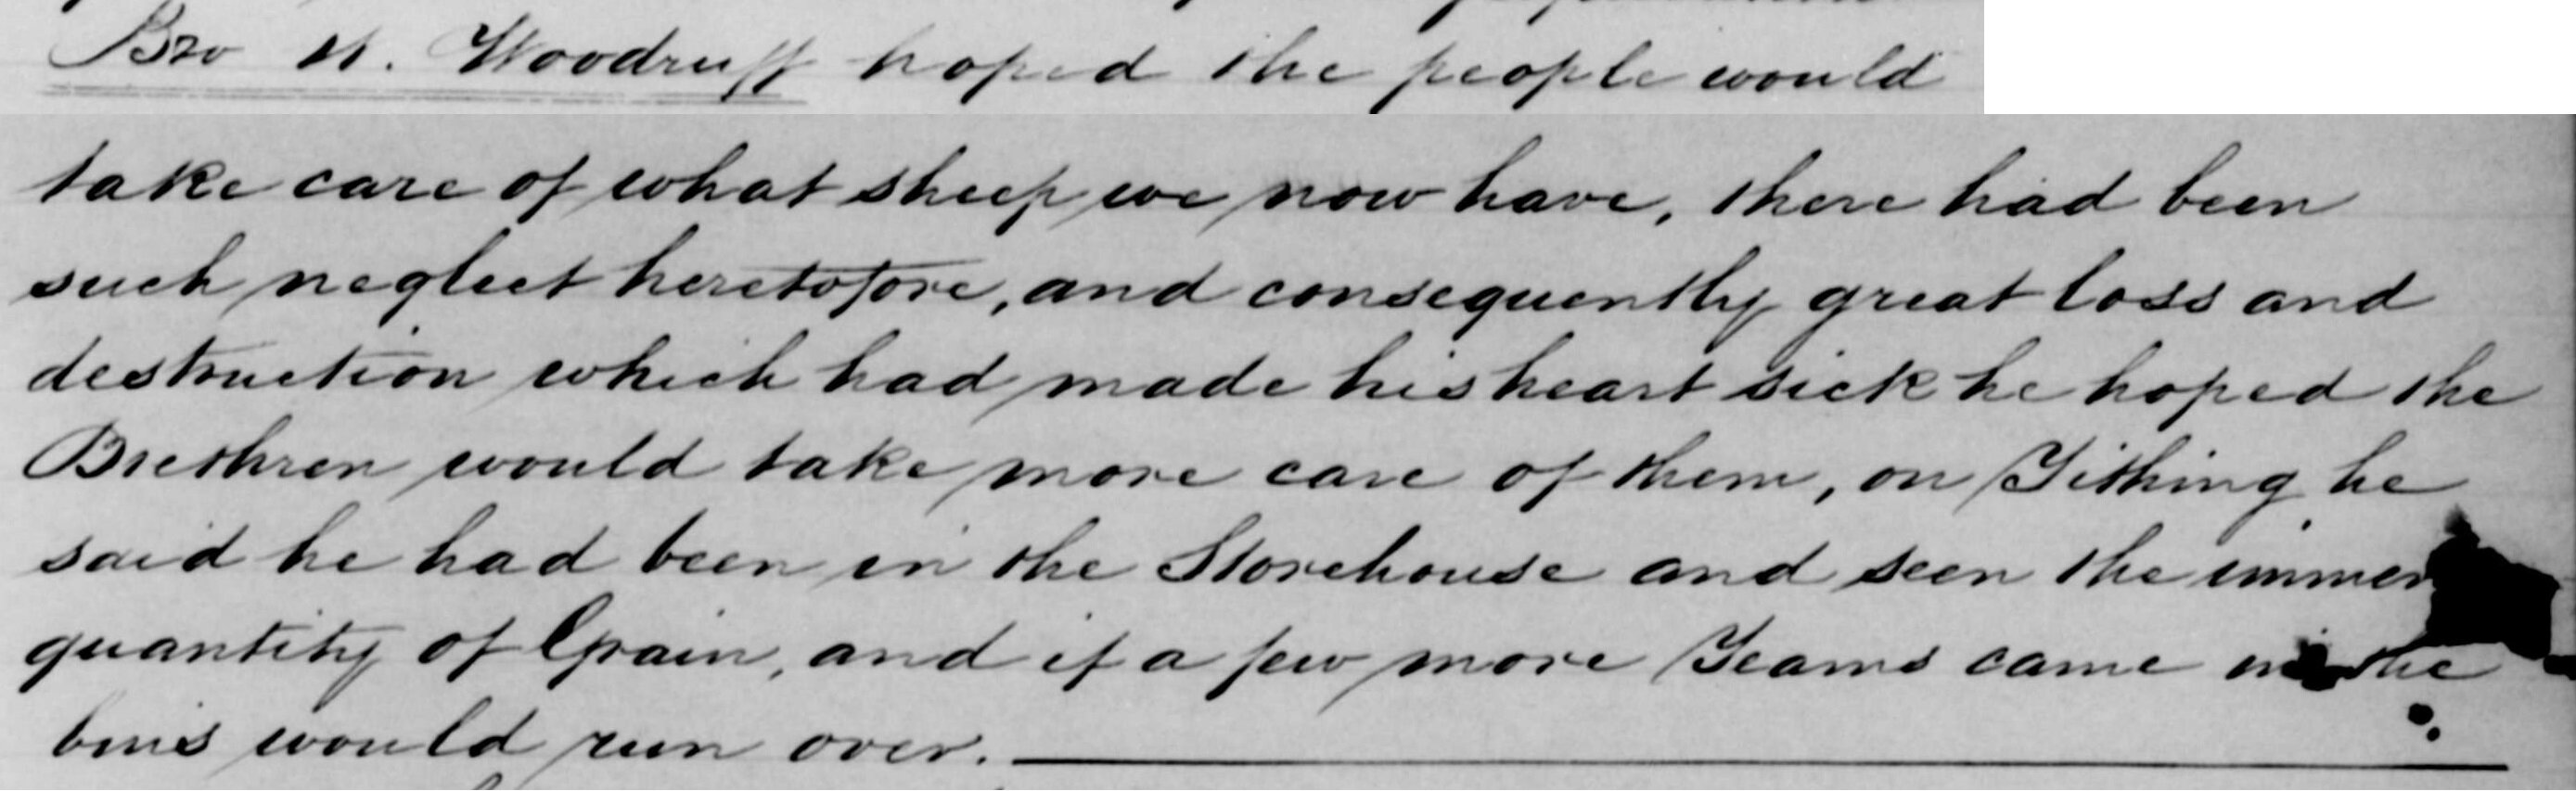 Bro W. Woodruff hoped the people would
take care of what sheep we now have, there had been
such neglect heretofore, and consequently great loss and
destruction which had made his heart sick he hoped the
Brethren would take more care of them, on Tithing he
said he had been in the Storehouse and seen the
quantity of Grain, and if a few more Teams came in the
bins would run over.